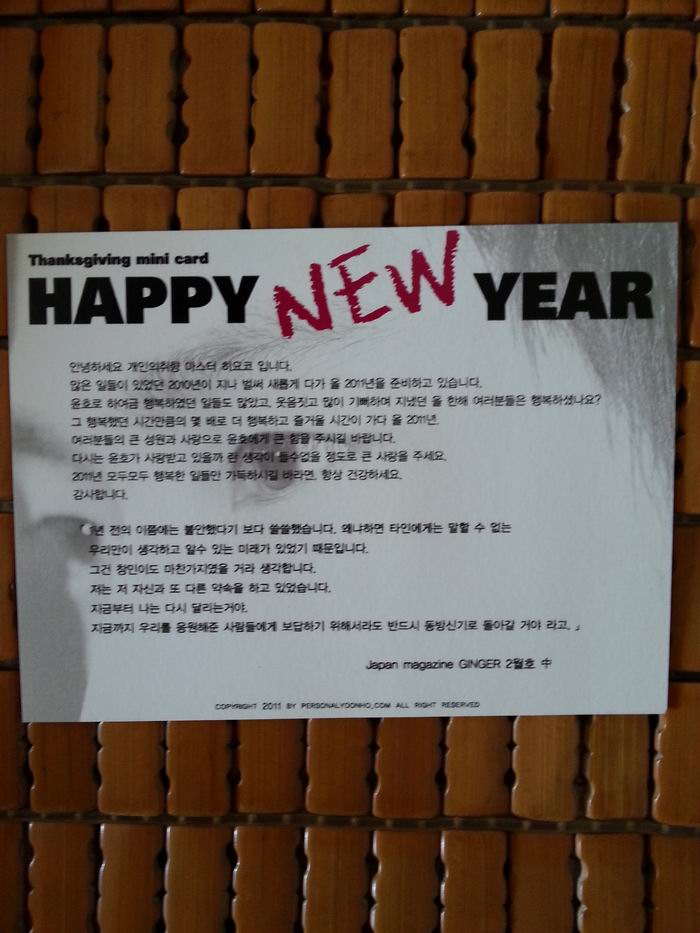 Thanksgiving mini card
HAPPY NEW YEAR
안녕하세요 개인의취향 마스터 히요코 입니다.
많은 일들이 있었던 2010년이 지나 벌써 새롭게 다가 올 2011년을 준비하고 있습니다.
윤호로 하여금 행복하였던 일들도 많았고, 웃음짓고 많이 기뻐하며 지냈던 올 한해 여러분들은 행복하셨나요?
그 행복했던 시간만큼의 몇 배로 더 행복하고 즐거울 시간이 가다 올 2011년.
여러분들의 큰 성원과 사랑으로 윤호에게 큰 힘을 주시길 바랍니다.
다시는 윤호가 사랑받고 있을까 란 생각이 들수없을 정도로 큰 사랑을 주세요.
2011년 모두모두 행복한 일들만 가득하시길 바라면, 항상 건강하세요.
감사합니다.
년 전의 이쯤에는 불안했다기 보다 쓸쓸했습니다. 왜냐하면 타인에게는 말할 수 없는
우리만이 생각하고 알수 있는 미래가 있었기 때문입니다.
그건 창민이도 마찬가지였을 거라 생각합니다.
저는 저 자신과 또 다른 약속을 하고 있었습니다.
지금부터 나는 다시 달리는거야.
지금까지 우리를 응원해준 사람들에게 보답하기 위해서라도 반드시 동방신기로 돌아갈 거야 라고. 」
Japan magazine GINGER 2월호 中
COPYRIGHT 2011 BY PERSONALYOONHO.COM ALL RIGHT RESERVED